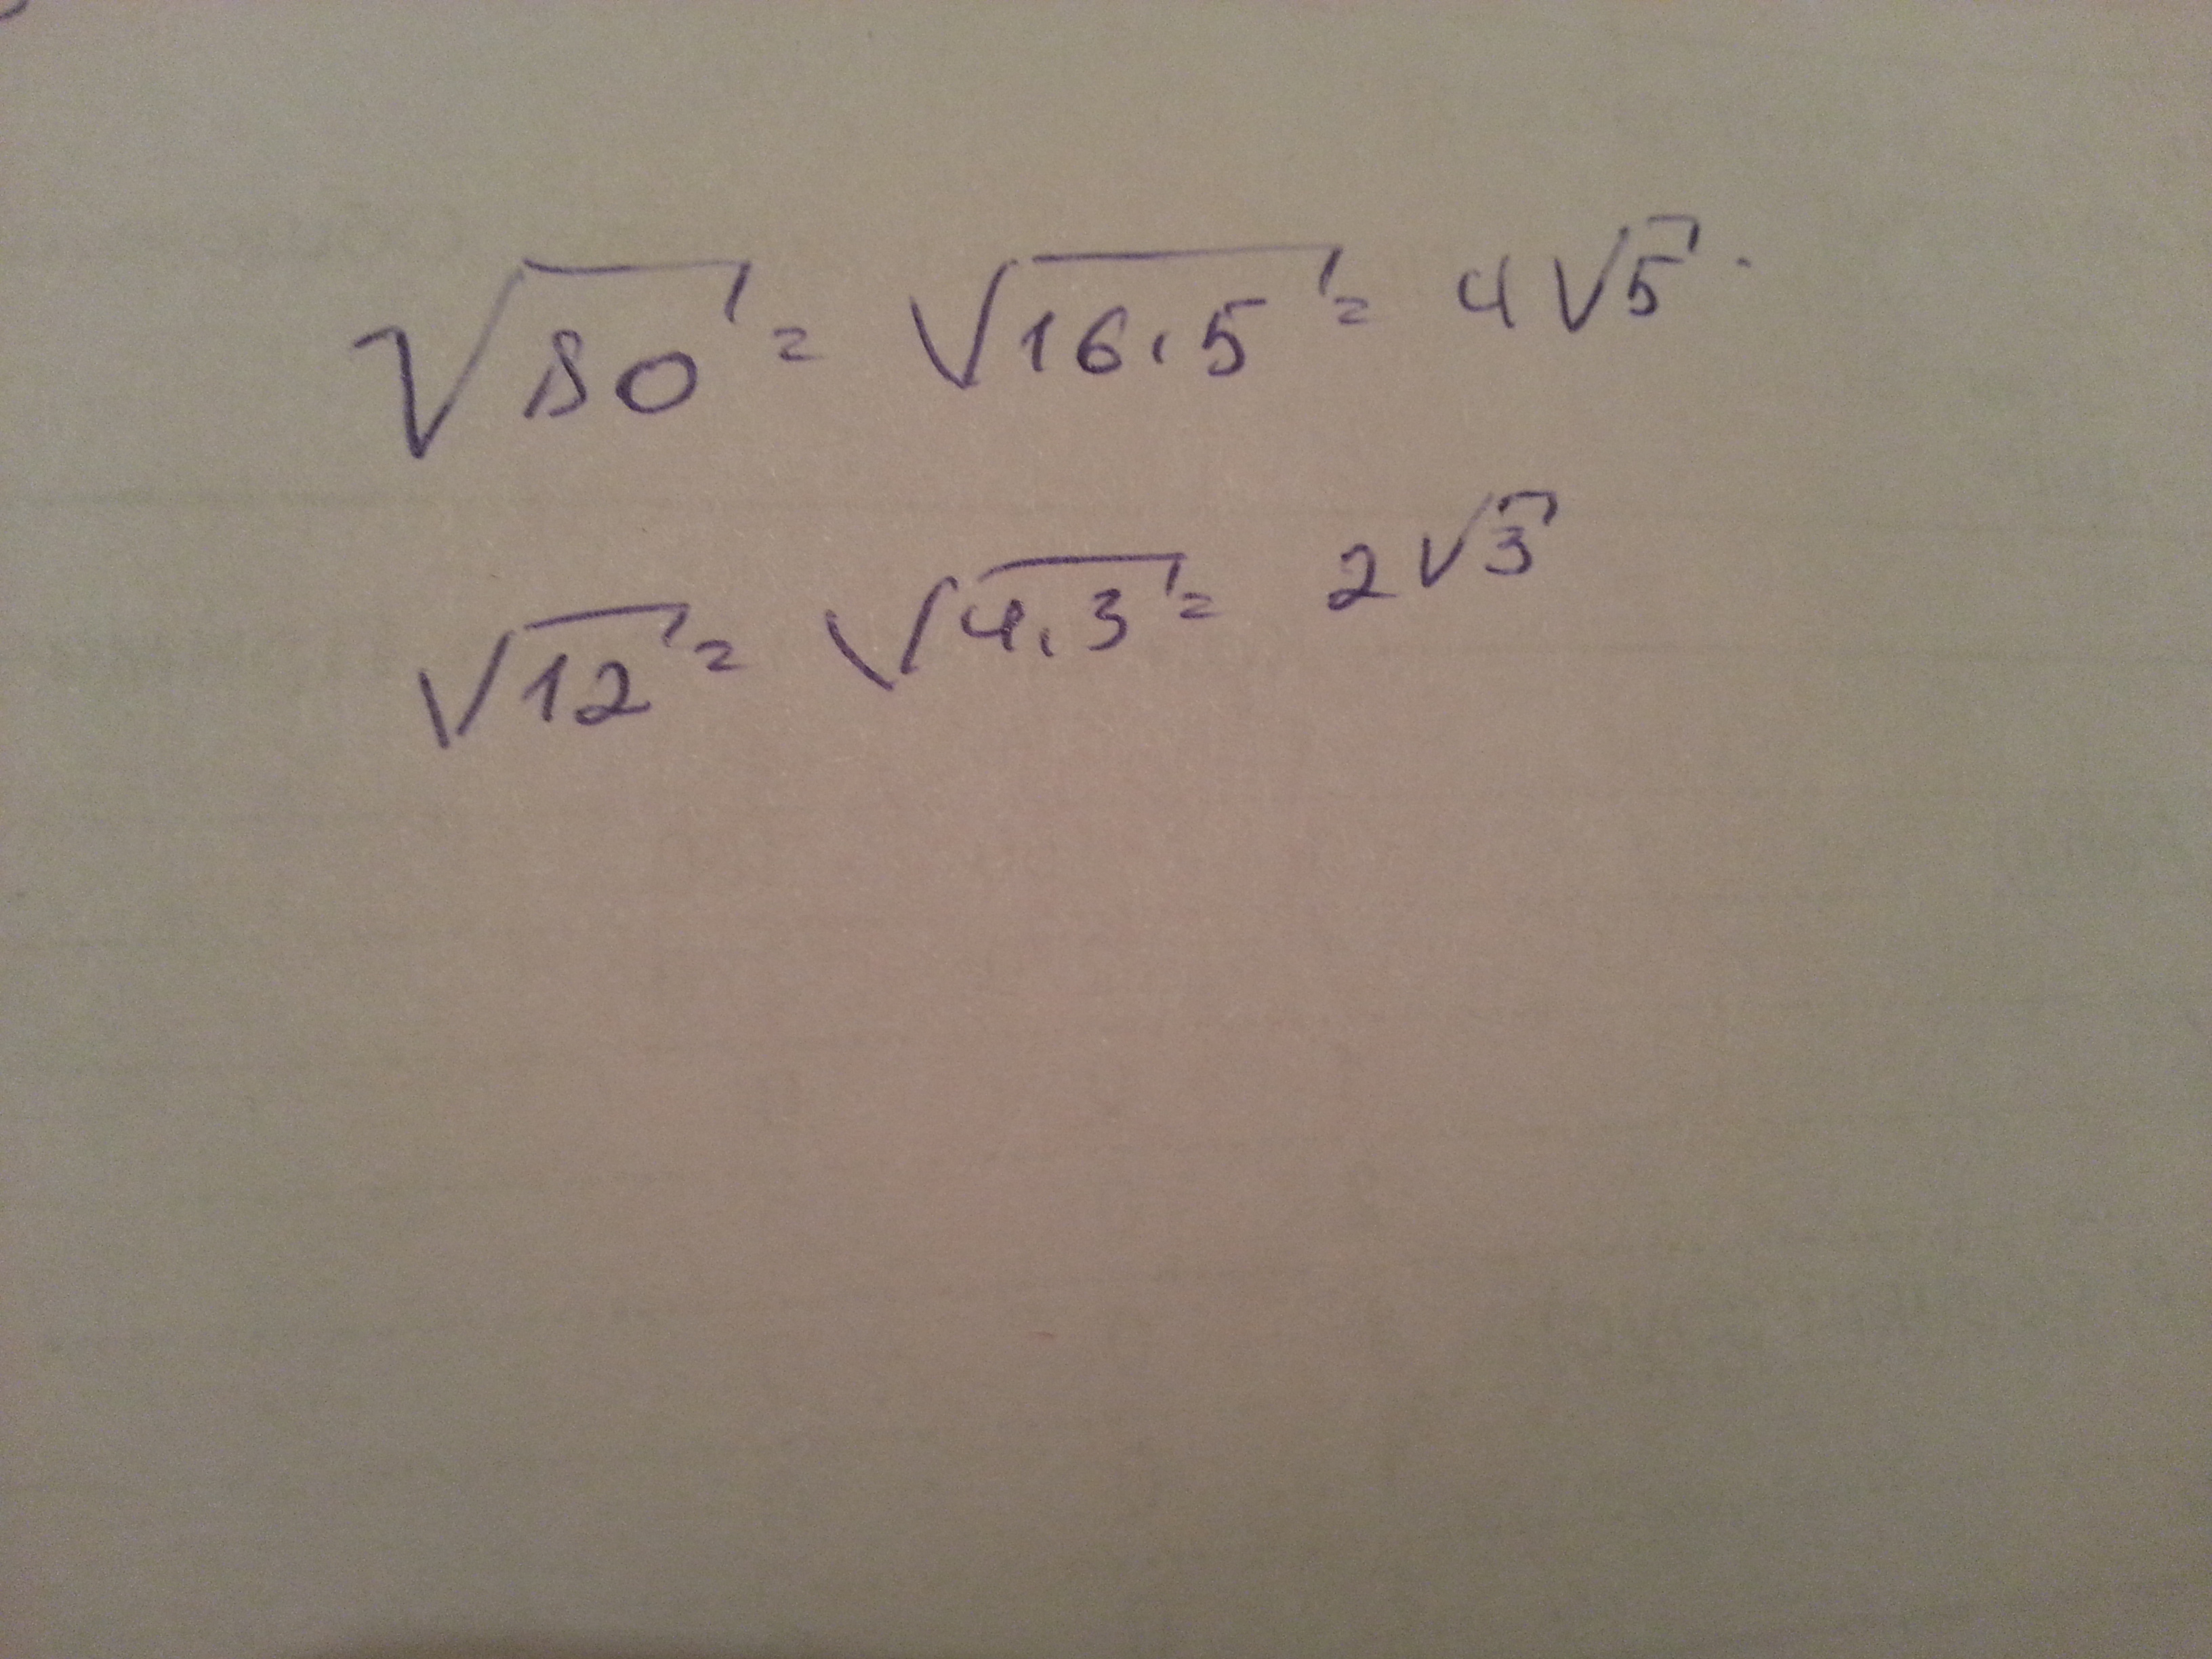 √80 = √16·5 = 4√5.
√12 = √4·3 = 2√3